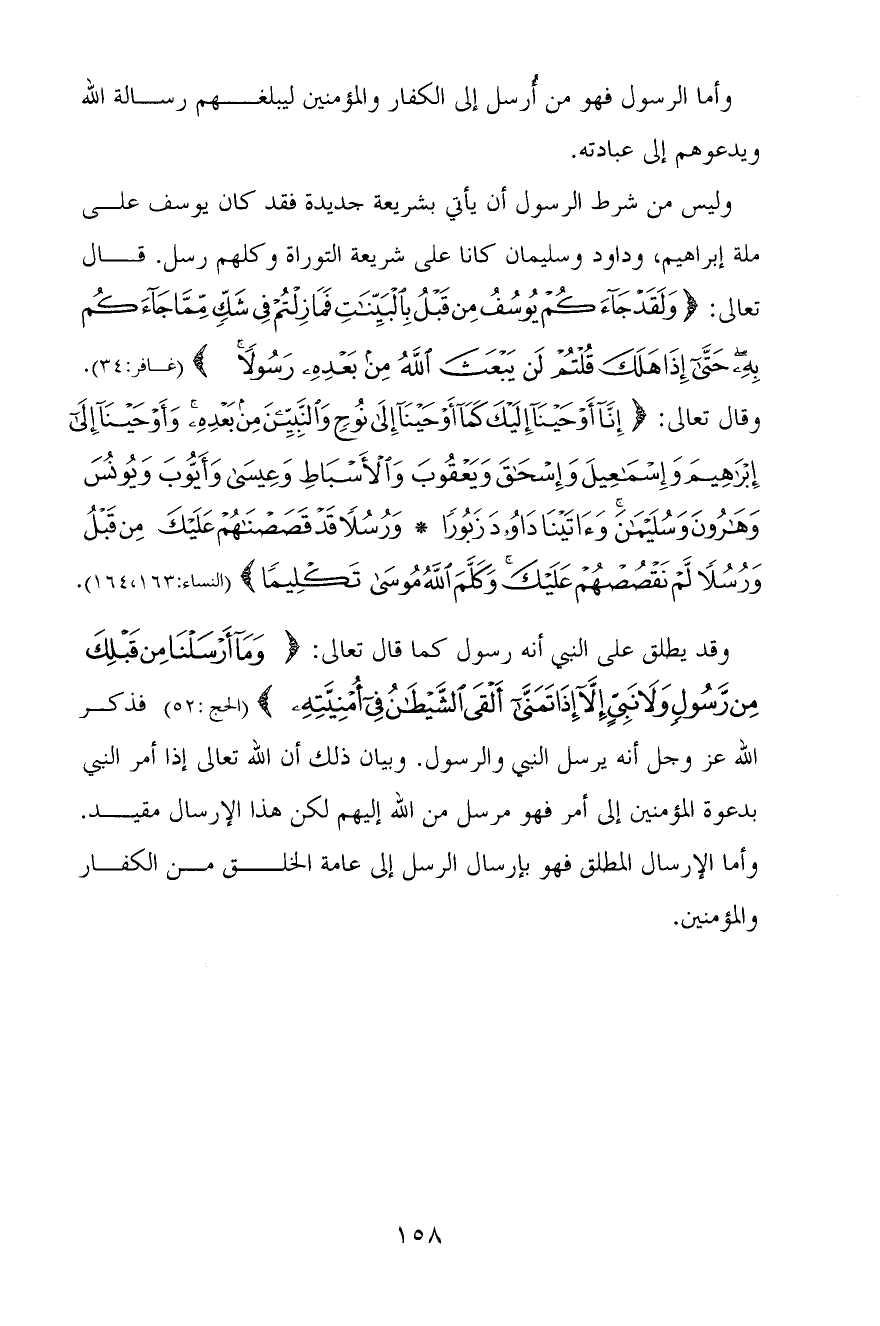 وأما الرسول فهو من أُرسل إلى الكفار والمؤمنين ليبلغهم رسالة الله
ويدعوهم إلى عبادته.
وليس من شرط الرسول أن يأتي بشريعة جديدة فقد كان يوسف على
ملة إبراهيم، وداود وسليمان كانا على شريعة التوراة وكلهم رسل. قال
تعالى: ﴿ وَلَقَدْ جَآءَكُمْ يُوسُفُ مِن قَبْلُ بِٱلْبَيِّنَٰتِ فَمَا زِلْتُمْ فِى شَكٍّ مِّمَّا جَآءَكُم
بِهِۦۖ حَتَّىٰٓ إِذَا هَلَكَ قُلْتُمْ لَن يَبْعَثَ ٱللَّهُ مِنۢ بَعْدِهِۦ رَسُولًاۚ ﴾ (غافر:٣٤).
وقال تعالى: ﴿ إِنَّآ أَوْحَيْنَآ إِلَيْكَ كَمَآ أَوْحَيْنَآ إِلَىٰ نُوحٍ وَٱلنَّبِيِّـۧنَ مِنۢ بَعْدِهِۦۚ وَأَوْحَيْنَآ إِلَىٰٓ
إِبْرَٰهِيمَ وَإِسْمَٰعِيلَ وَإِسْحَٰقَ وَيَعْقُوبَ وَٱلْأَسْبَاطِ وَعِيسَىٰ وَأَيُّوبَ وَيُونُسَ
وَهَٰرُونَ وَسُلَيْمَٰنَۚ وَءَاتَيْنَا دَاوُۥدَ زَبُورًا * وَرُسُلًا قَدْ قَصَصْنَٰهُمْ عَلَيْكَ مِن قَبْلُ
وَرُسُلًا لَّمْ نَقْصُصْهُمْ عَلَيْكَۚ وَكَلَّمَ ٱللَّهُ مُوسَىٰ تَكْلِيمًا ﴾ (النساء:١٦٣، ١٦٤).
وقد يطلق على النبي أنه رسول كما قال تعالى: ﴿ وَمَآ أَرْسَلْنَا مِن قَبْلِكَ
مِن رَّسُولٍ وَلَا نَبِىٍّ إِلَّآ إِذَا تَمَنَّىٰٓ أَلْقَى ٱلشَّيْطَٰنُ فِىٓ أُمْنِيَّتِهِۦ ﴾ (الحج:٥٢) فذكر
الله عز وجل أنه يرسل النبي والرسول. وبيان ذلك أن الله تعالى إذا أمر النبي
بدعوة المؤمنين إلى أمر فهو مرسل من الله إليهم لكن هذا الإرسال مقيد.
وأما الإرسال المطلق فهو بإرسال الرسل إلى عامة الخلق من الكفار
والمؤمنين.
١٥٨